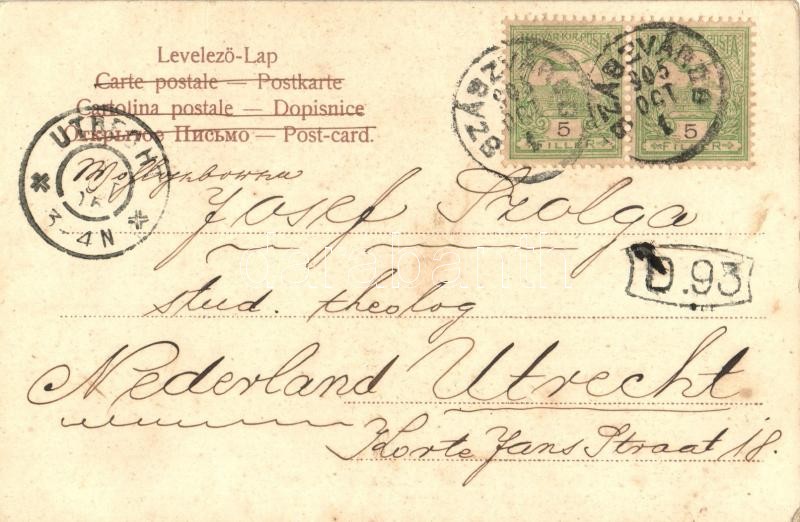 Levelező-Lap
Carte postale — Postkarte
Cartolina postale — Dopisnice
Открытое Письмо — Post-card.
MAGYAR KIR. POSTA
5
FILLÉR
5
FILLÉR
SZÁSZVÁROS
905
OCT
SZÁSZVÁROS
905
OCT
UTRECHT
3-4 N
Josef
D.93
stud. theolog
Nederland Utrecht
Korte Jans Straat 18.